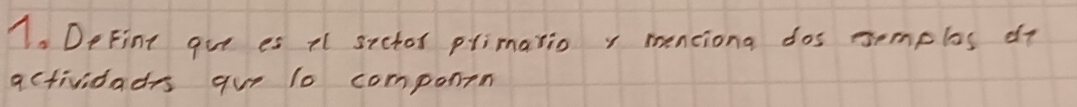 1. Define que es el sector primario y menciona dos ejemplos de
actividades que lo componen